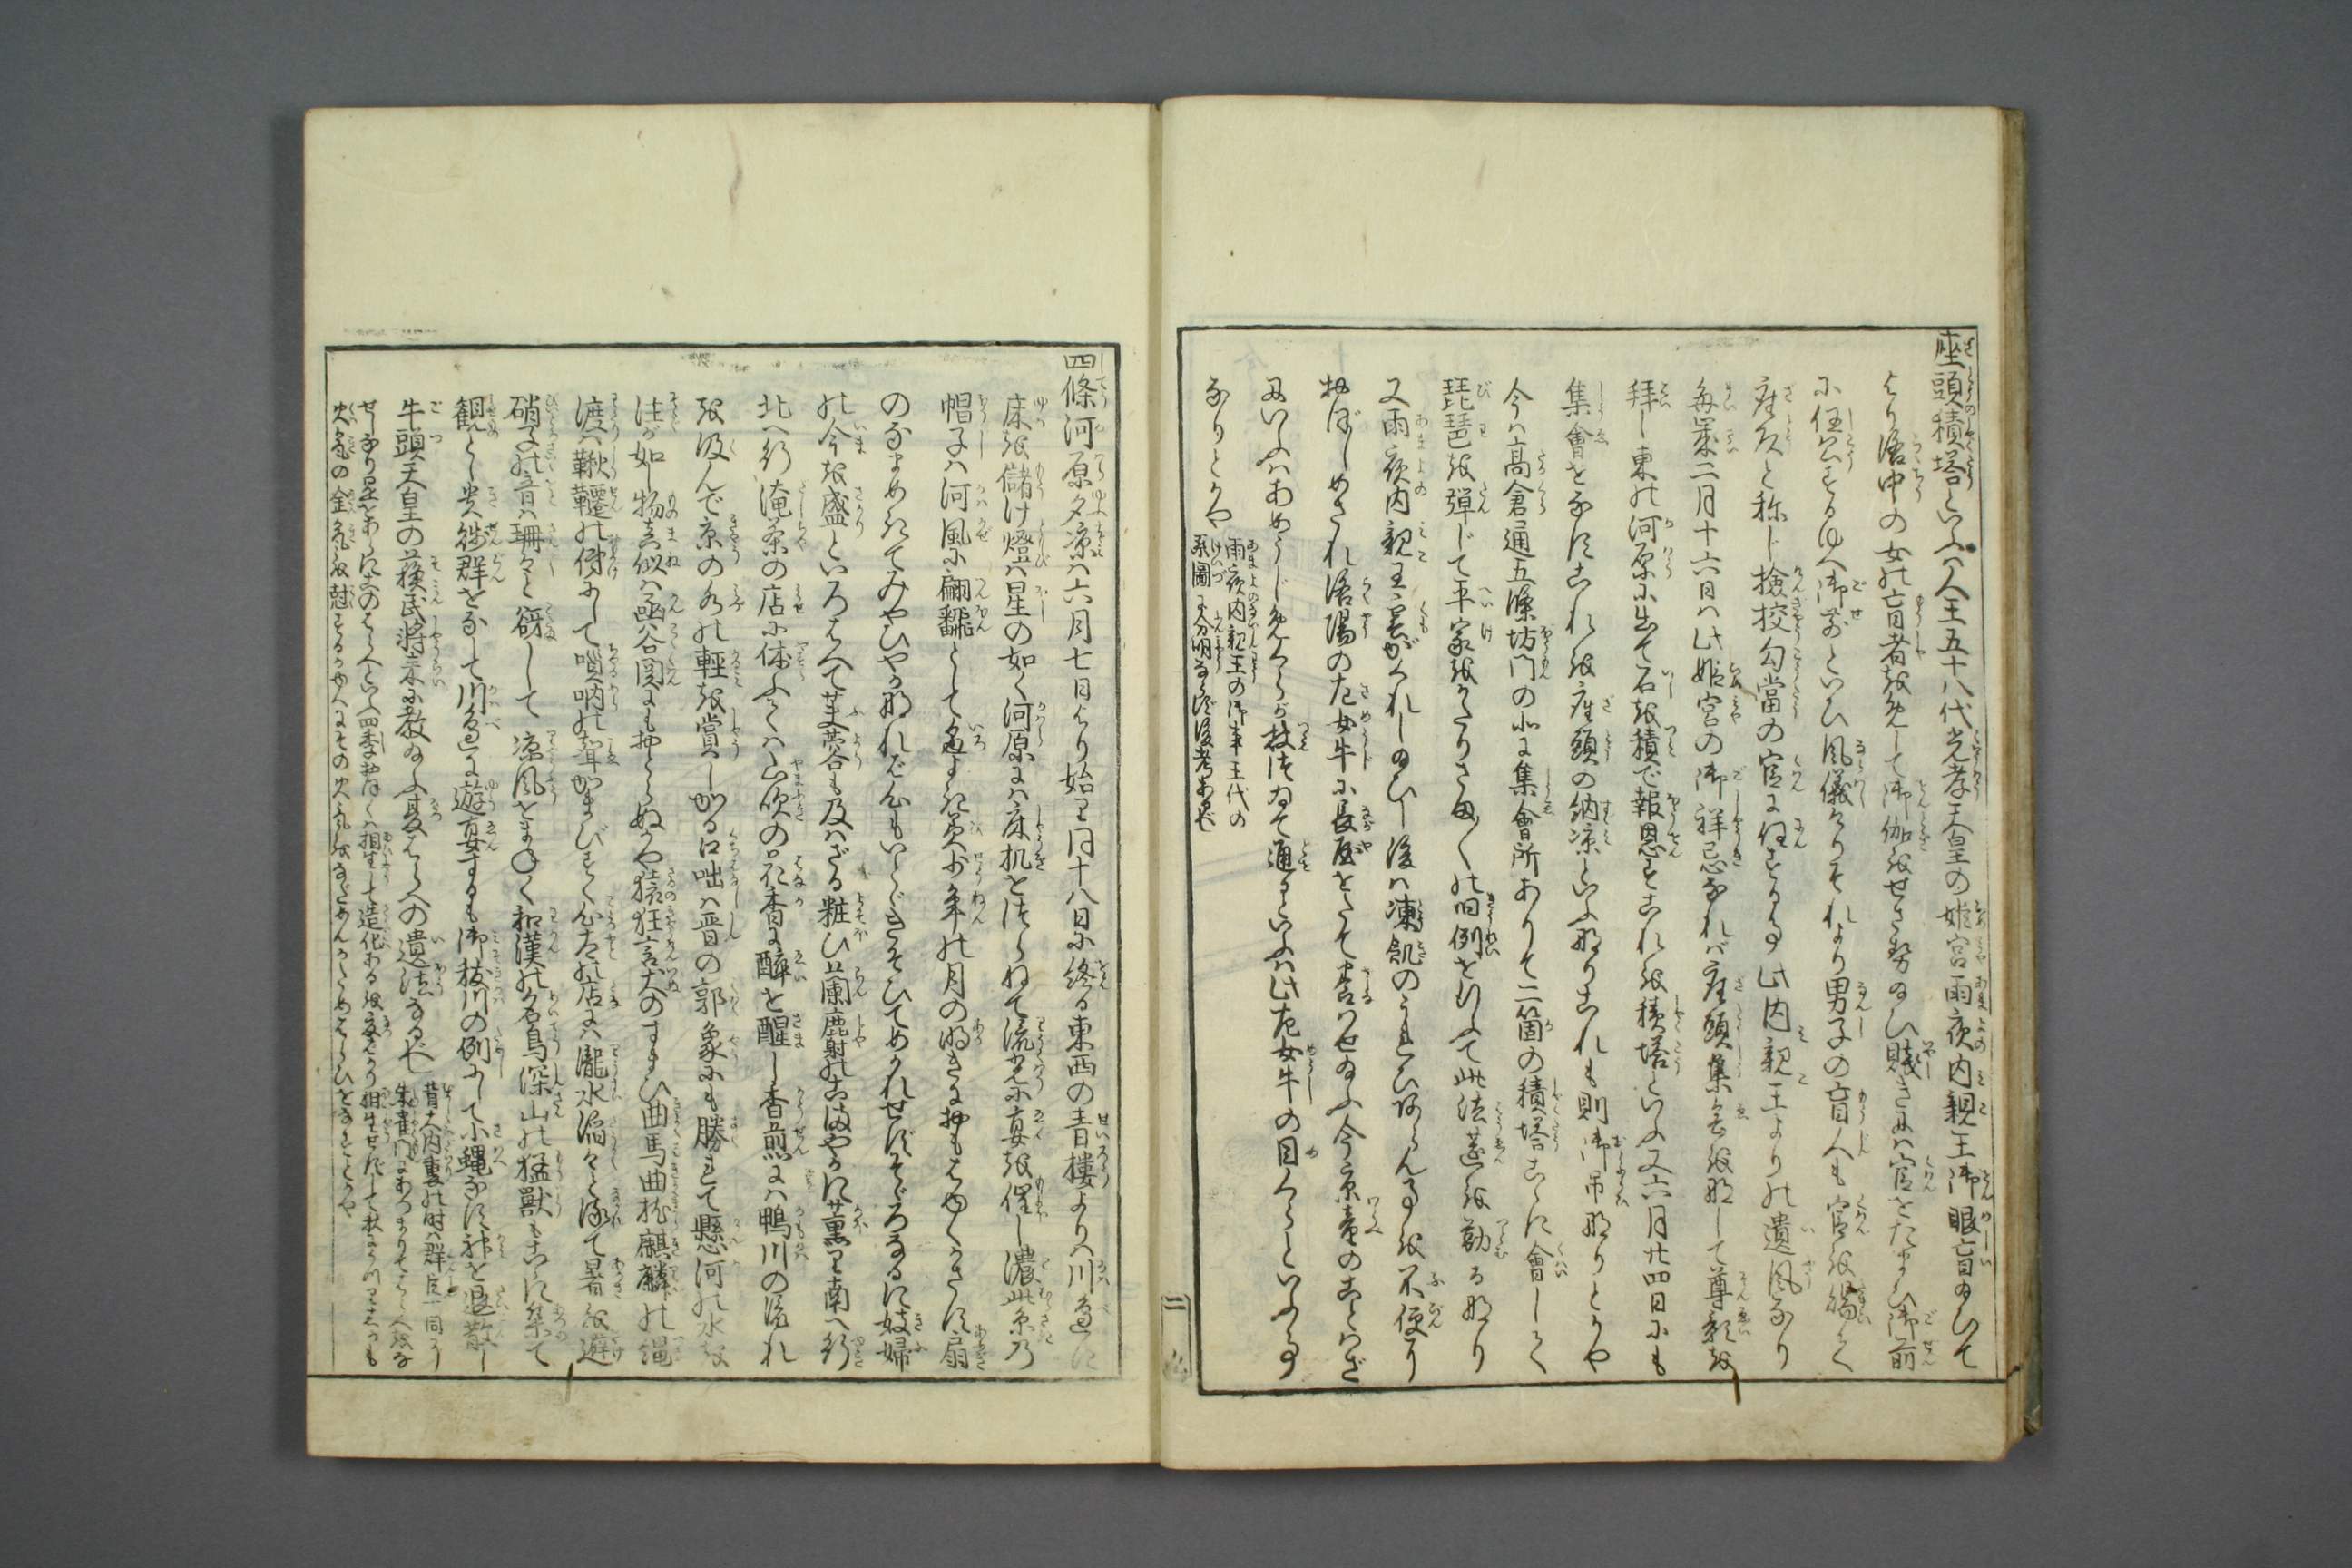 座頭積塔といふハ人王五十八代光孝天皇の姫宮雨夜内親王御眼盲ゐひて
より洛中の女の盲者を免して御伽をせさせ給ひ賤きにハ官をたまひ御前
に任公するゆへ御前といひ風儀なりそれより男子の盲人も官を賜はく
座頭と称じ検校勾當の官に任ずる事此内親王よりの遺風なり
毎歳二月十六日ハ此姫宮の御祥忌なれバ座頭集会をなして尊影を
拝し東の河原に出て石を積で報恩すこれを積塔といふ又六月廿四日にも
集會をなすこれを座頭の納涼といふなりこれも則御弔なりとかや
今ハ高倉通五條坊門の北に集會所ありて二箇の積塔こゝに會しく
琵琶を弾じて平家をかたりさま〴〵の旧例を行ふて此法莚を勤るなり
又雨夜内親王雲がくれし給ひし後ハ凍飢のうれひあらん事を不便に
おぼしめされ洛陽の左女牛に長屋をたて置せ給ふ今京童のことわざ
にいふハあめうじ めくらが杖つゐて通るといふハ此左女牛の目くらといふ事
なりとかや
雨夜内親王の御事王代の
系圖に分明ならず後考あるべし
四條河原夕涼ハ六月七日より始り同十八日に終る東西の青樓よりハ川邊に
床を儲け燈ハ星の如く河原にハ床机をつらねて流光に宴を催し濃紫の
帽子ハ河風に翩飜として色よき美少年の月の明きにおもはゆくかざす扇
のなまめきてみやびやかなれば心もいとゞきそひてめかれせずそゞろなるに妓婦
の今を盛といろはへて芙蓉も及ハざる粧ひ蘭麝のこまやかに薫り南へ行
北へ行淹茶の店に休ふてハ山吹の花香に醉を醒し香煎にハ鴨川の流れ
を汲んで京の水の輕を賞しかる口咄ハ晋の郭象にも勝れて懸河の水を
注が如し物真似ハ函谷関にもおとらぬや猿狂言犬のすまひ曲馬曲枕麒麟の縄
渡ハ鞦韆の俤にして嗩吶の聲かまびすく心太の店にハ瀧水滔々と流て暑を避
硝子の音ハ珊々と谺して凉風をまねく和漢の名鳥深山の猛獣もこゝに集て
観とし貴賤群をなして川邊に遊宴するも御祓川の例にして小蝿なす神を退散し
牛頭天皇の蘇民将来に教給ふ夏はらへの遺法なるべし
昔大内裏の時ハ群臣一同に
朱雀門にあつまりてはらへをな
せしなり是をあらにこのはらへといへ四季おほくハ相生して造化あるを夏より相生せずして秋にうつりきたるも
火気の金気を尅するゆへにその火気をなだめんためはらひをなすとかや
二